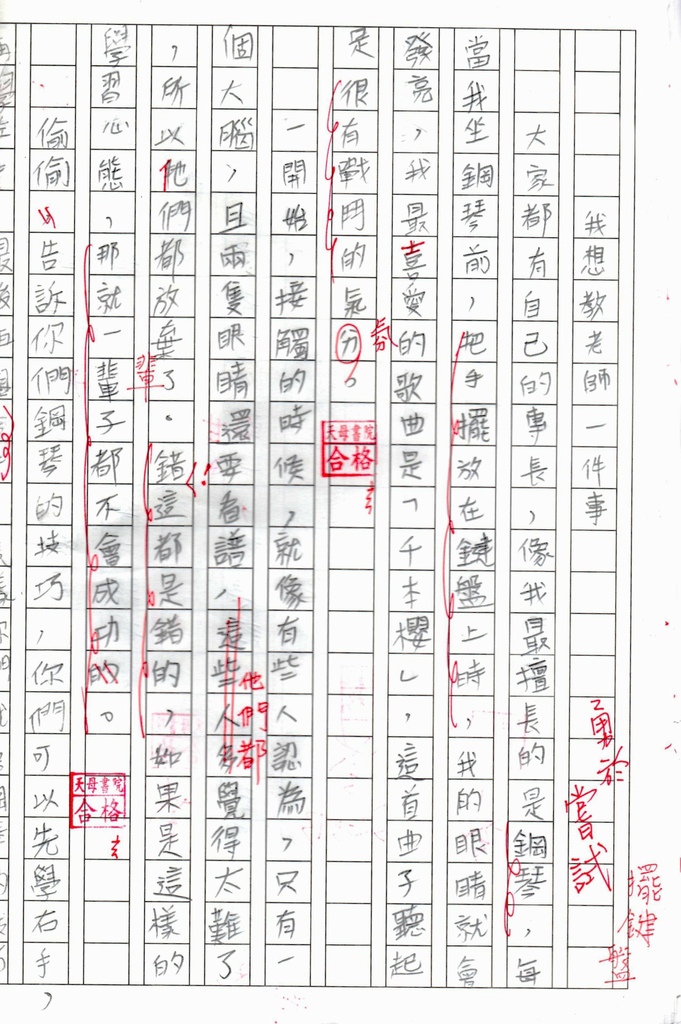 我想教老師一件事
勇於嘗試
擺鍵盤
大家都有自己的專長，像我最擅長的是鋼琴，每
當我坐鋼琴前，把手擺放在鍵盤上時，我的眼睛就會
發亮，我最喜愛的歌曲是「千本櫻」，這首曲子聽起
是很有戰鬥的氣分。
氛
天母書院
合格
一開始，接觸的時候，就像有些人認為，只有一
個大腦，且兩隻眼睛還要看譜，這些人多覺得太難了
他們都
，所以他們都放棄了。錯這都是錯的，如果是這樣的
！
輩
學習心態，那就一輩子都不會成功的。
天母書院
合格
偷偷告訴你們鋼琴的技巧，你們可以先學右手，